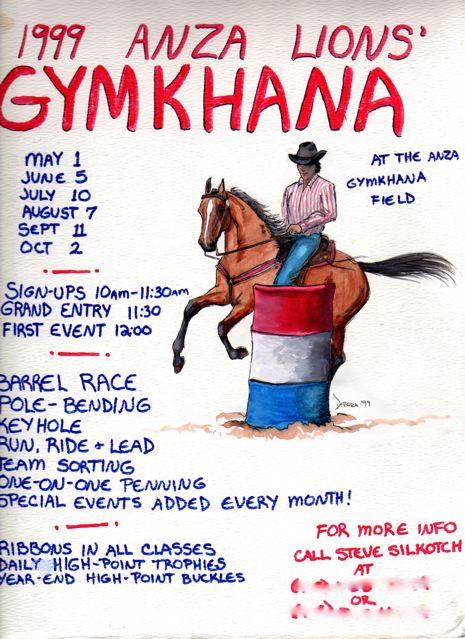 1999 ANZA LIONS'
GYMKHANA
MAY 1
JUNE 5
JULY 10
AUGUST 7
SEPT 11
OCT 2
AT THE ANZA
GYMKHANA
FIELD
SIGN-UPS 10AM-11:30AM
GRAND ENTRY 11:30
FIRST EVENT 12:00
BARREL RACE
POLE-BENDING
KEYHOLE
RUN, RIDE & LEAD
TEAM SORTING
ONE-ON-ONE PENNING
SPECIAL EVENTS ADDED EVERY MONTH!
RIBBONS IN ALL CLASSES
DAILY HIGH-POINT TROPHIES
YEAR-END HIGH-POINT BUCKLES
FOR MORE INFO
CALL STEVE SILKOTCH
AT
OR